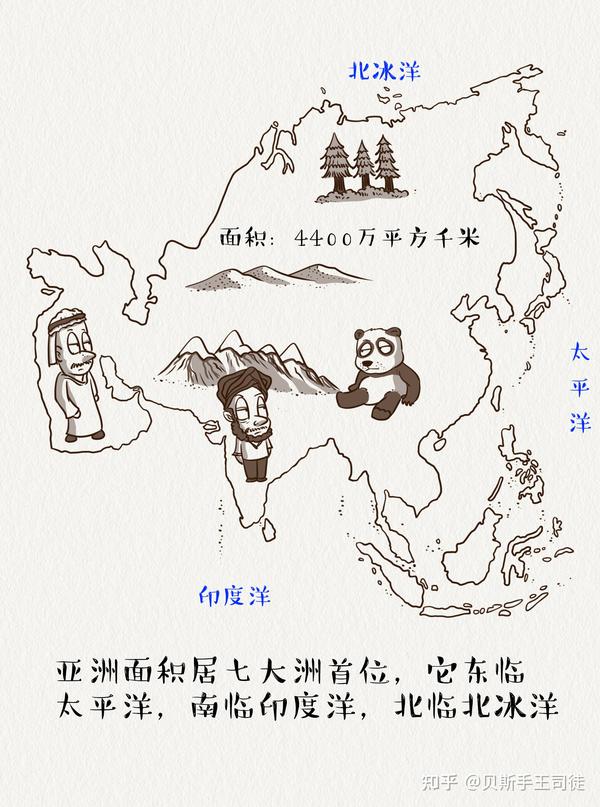 北冰洋
面积：4400万平方千米
太平洋
印度洋
亚洲面积居七大洲首位，它东临
太平洋，南临印度洋，北临北冰洋
知乎 @贝斯手王司徒